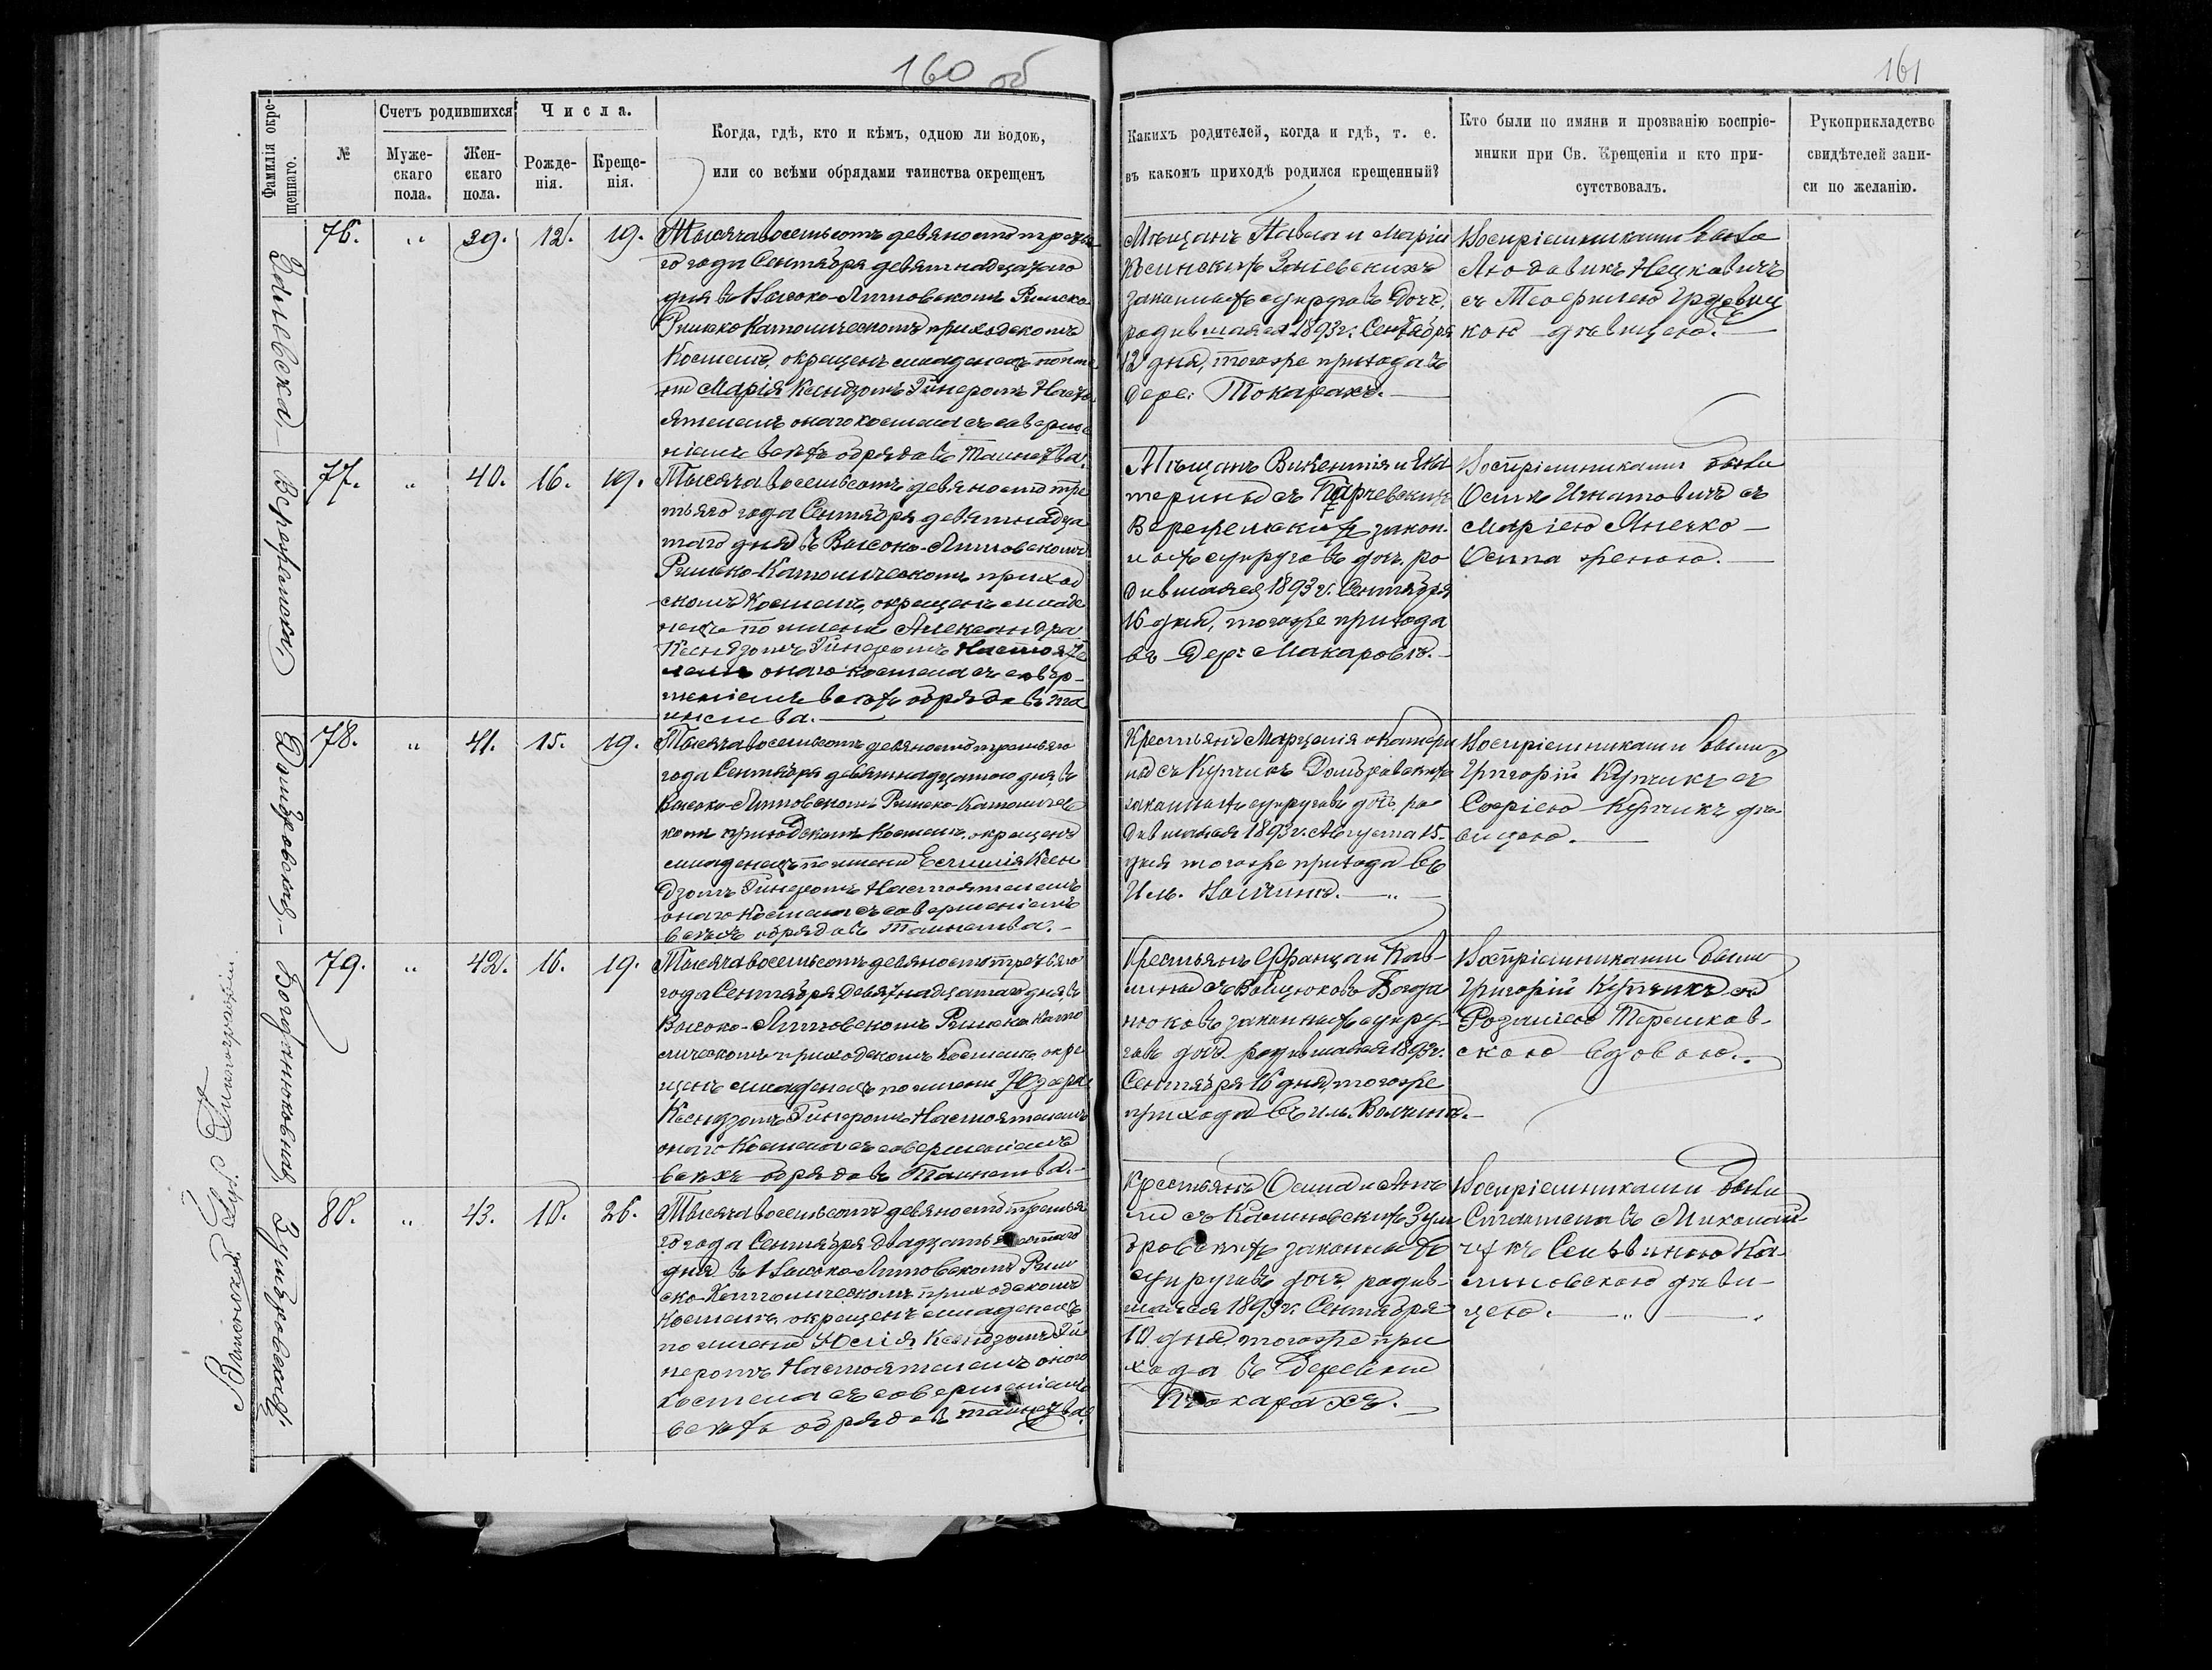 160 об
161
Фамилія окре-
щеннаго.
№
Счетъ родившихся
Муже-
скаго
пола.
Жен-
скаго
пола.
Числа.
Рожде-
нія.
Креще-
нія.
Когда, гдѣ, кто и кѣмъ, одною ли водою,
или со всѣми обрядами таинства окрещенъ
Каких родителей, когда и гдѣ, т. е.
въ какомъ приходѣ родился крещенный?
Кто были по имяни и прозванію воспріе-
мники при Св. Крещеніи и кто при-
сутствовалъ.
Рукоприкладство
свидѣтелей запи-
си по желанію.
76. „ 39. 12. 19.
Тысяча восемьсотъ девяносто третья
го года Сентября девятнадцатаго
дня въ Высоко-Литовскомъ Римско
Римско Католическомъ приходскомъ
Костелѣ, окрещенъ младенецъ по име
ни Марія Ксендзомъ Гинеромъ Насто
ятелемъ онаго костела съ соверше
ніемъ всѣхъ обрядовъ таинства.
Мѣщанъ Павла и Маріи
законныхъ супруговъ дочь,
родившаяся 1893 г. Сентября
12 дня, тогоже прихода въ
дере: Токарахъ.
Воспріемниками были
Людовикъ Нецковичъ
съ Теофилею
кою дѣвицею.
Верещинска
77. „ 40. 16. 19.
Тысяча восемьсотъ девяносто тре
тьяго года Сентября девятнадца
таго дня въ Высоко-Литовскомъ
Римско-Католическомъ приход
скомъ Костелѣ, окрещенъ младе
нецъ по имени Александра
Ксендзомъ Гинеромъ Настояте
лемъ онаго костела съ совер-
шеніемъ всѣхъ обрядовъ та
инства.
Мѣщанъ Викентія и Ека
терины съ Парчевскихъ
закон.
ныхъ супруговъ доч. ро
дившаяся 1893 г. Сентября
16 дня, тогоже прихода
въ Дер: Макаровѣ.
Воспріемниками были
Осипъ Игнатовичъ съ
Маріею Янечко
Осипа женою.
Домбровская
78. „ 41. 15. 19.
Тысяча восемьсотъ девяносто третьяго
года Сентября девятнадцатаго дня, въ
Высоко-Литовскомъ Римско-Католичес
комъ приходскомъ Костелѣ, окрещенъ
младенецъ по имени Ксен
дзомъ Гинеромъ Настоятелемъ
онаго Костела съ совершеніемъ
всѣхъ обрядовъ Таинства.
Крестьянъ Марцелія и Катери
ны съ Купчикъ Домбровскихъ
законныхъ супруговъ дочь, ро
дившаяся 1893 г. Августа 15.
дня тогоже прихода въ
Им. Волчинѣ.
Воспріемниками были
Григорій Купчикъ съ
Софіею Купчикъ дѣ
вицею.
79. „ 42. 16. 19.
Тысяча восемьсотъ девяносто третьяго
года Сентября девятнадцатаго дня, въ
Высоко-Литовскомъ Римско Като
лическомъ приходскомъ Костелѣ, окре
щенъ младенецъ по имени
Ксендзомъ Гинеромъ Настоятелемъ
онаго Костела съ совершеніемъ
всѣхъ обрядовъ Таинства.
Крестьянъ Франца и Кав-
лины съ Войцюковъ Богда
нюковъ законныхъ супру-
говъ доч. родившаяся 1893 г.
Сентября 16 дня, тогоже
прихода въ им. Волчинѣ.
Воспріемниками были
Григорій Купчикъ съ
Розаліею Терешков-
скою вдовою.
Зумбровская
80. „ 43. 10. 26.
Тысяча восемьсотъ девяносто третья
го года Сентября двадцать шестаго
дня въ Высоко-Литовскомъ Рим
ско-Католическомъ приходскомъ
Костелѣ, окрещенъ младенецъ
по имени Юлія Ксендзомъ Ги
неромъ Настоятелемъ онаго
костела съ совершеніемъ
всѣхъ обрядовъ таинства.
Крестьянъ Осипа и Ан
ны съ Калиновскихъ Зум
бровскихъ законныхъ
супруговъ доч. родив-
шаяся 1893 г. Сентября
10 дня, тогоже при
хода въ Деревни
Токарахъ.
Воспріемниками были
съ
линовскою дѣви-
цею.